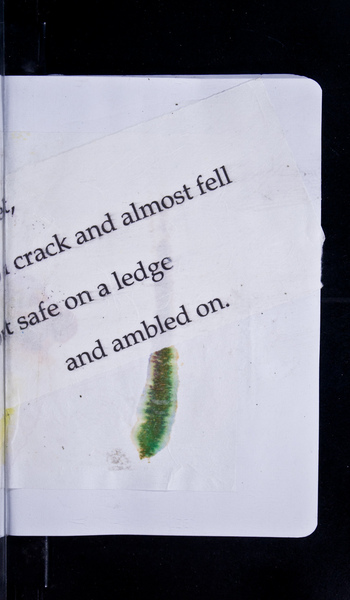 crack and almost fell
safe on a ledge
and ambled on.